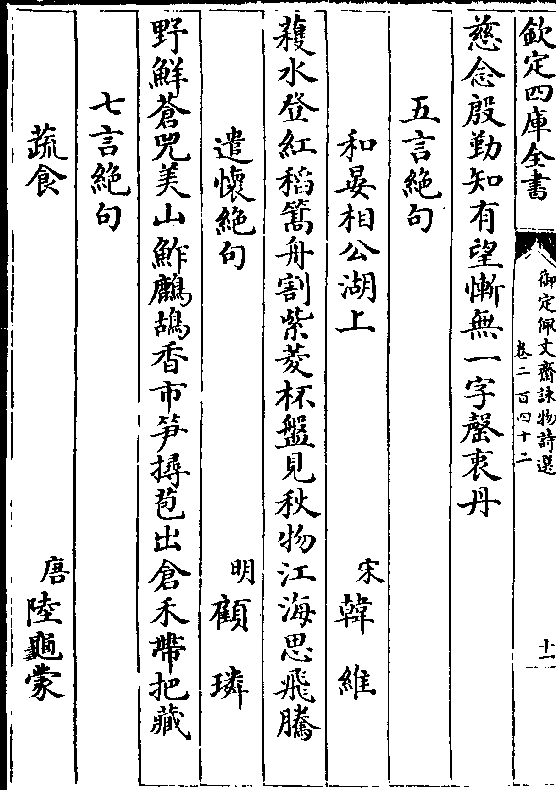 欽定四庫全書
御定佩文齋詠物詩選
卷二百四十二
十一
慈念殷勤知有望慚無一字罄衷丹
五言絶句
和晏相公湖上 宋 韓維
穫水登紅稻篙舟割紫菱杯盤見秋物江海思飛騰
遣懷絶句 明 顧璘
野鮮蒼兕美山鮓鷓鴣香市笋擣苞出倉禾帶把藏
七言絶句
蔬食 唐 陸龜蒙